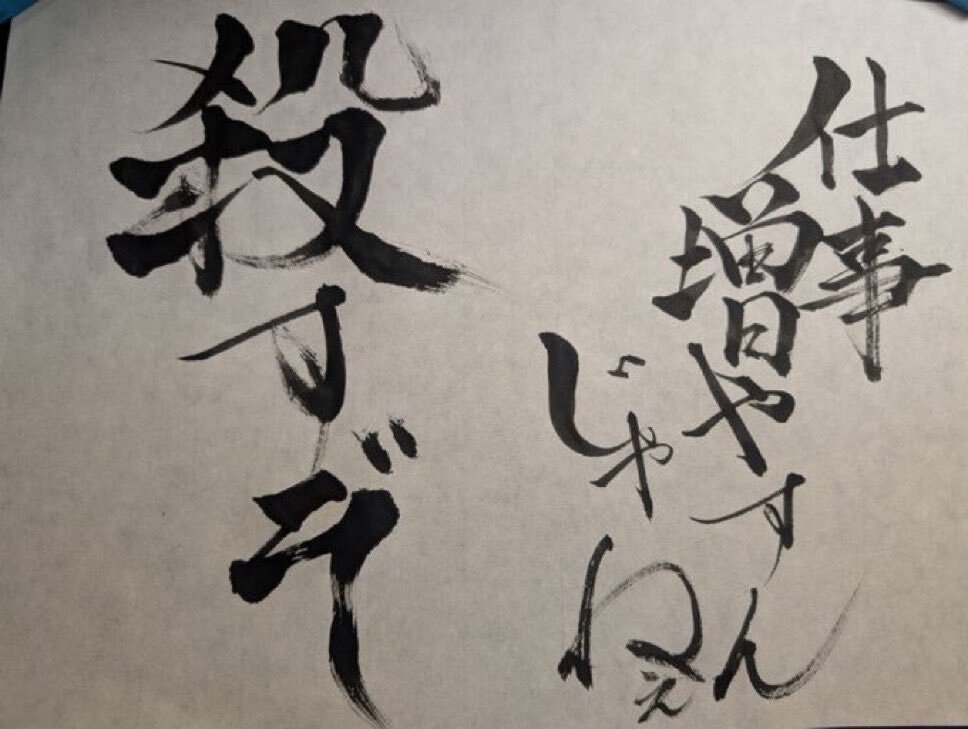 仕事増やすん
じゃねぇ
殺すぞ